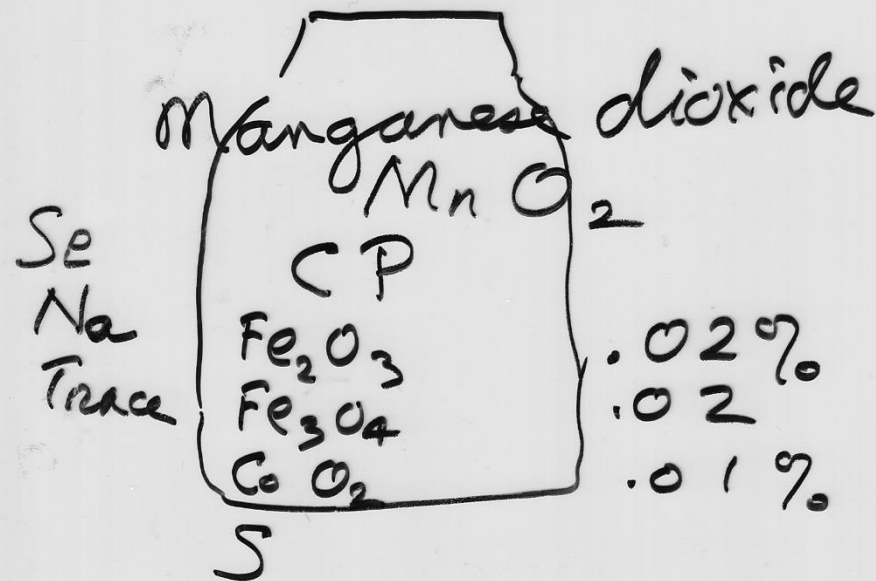 Manganese dioxide
MnO₂
CP
Se
Na
Trace
Fe₂O₃ .02%
Fe₃O₄ .02
CoO₂ .01%
S